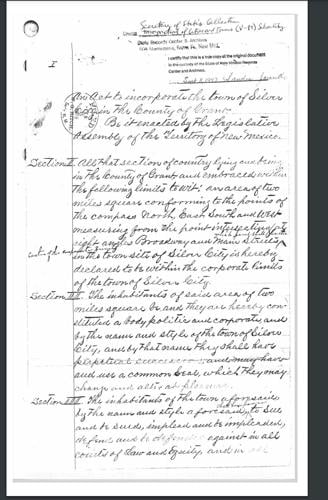 Secretary of State's Collection
State Records Center & Archives
I certify that this is a true copy of the original document
in the custody of the State of New Mexico Records
Center and Archives.
I
An Act to incorporate the town of Silver
City in the County of Grant.
Be it enacted by the Legislative
Assembly of the Territory of New Mexico.
Section I. All that section of country lying and being
in the County of Grant and embraced within
the following limits to wit: an area of two
miles square conforming to the points of
the compass North, East, South and West
measuring from the point
right angles Broadway and Main Streets
in the town site of Silver City is hereby
declared to be within the corporate limits
of the town of Silver City.
Section II. The inhabitants of said area of two
miles square be and they are hereby con-
stituted a body politic and corporate, and
by the name and style of the town of Silver
City, and by that name they shall have
perpetual succession and may have
and use a common Seal, which they may
change and alter at pleasure.
Section III. The inhabitants of the town aforesaid
by the name and style aforesaid, to Sue
and be sued, implead and be impleaded,
defend and be defended against in all
courts of Law and Equity, and in all